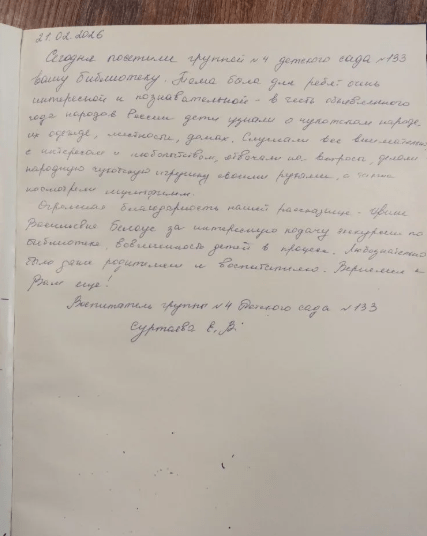 21.02.2026
Сегодня посетили группой №4 детского сада №133
Вашу библиотеку. Тема была для ребят очень
интересной и познавательной - в честь объявленного
года народов России дети узнали о чукотском народе,
их одежде, местности, домах. Слушали все внимательно
с интересом и любопытством, отвечали на вопросы, делали
народную чукотскую игрушку своими руками, а также
посмотрели мультфильм.
Огромная благодарность нашей рассказчице - Ирине
Васильевне за интересную подачу экскурсии по
библиотеке, вовлечённость детей в процесс. Любознательно
было даже родителям и воспитателю. Вернёмся к
Вам ещё!
Воспитатель группы №4 детского сада №133
Суртаева Е. В.